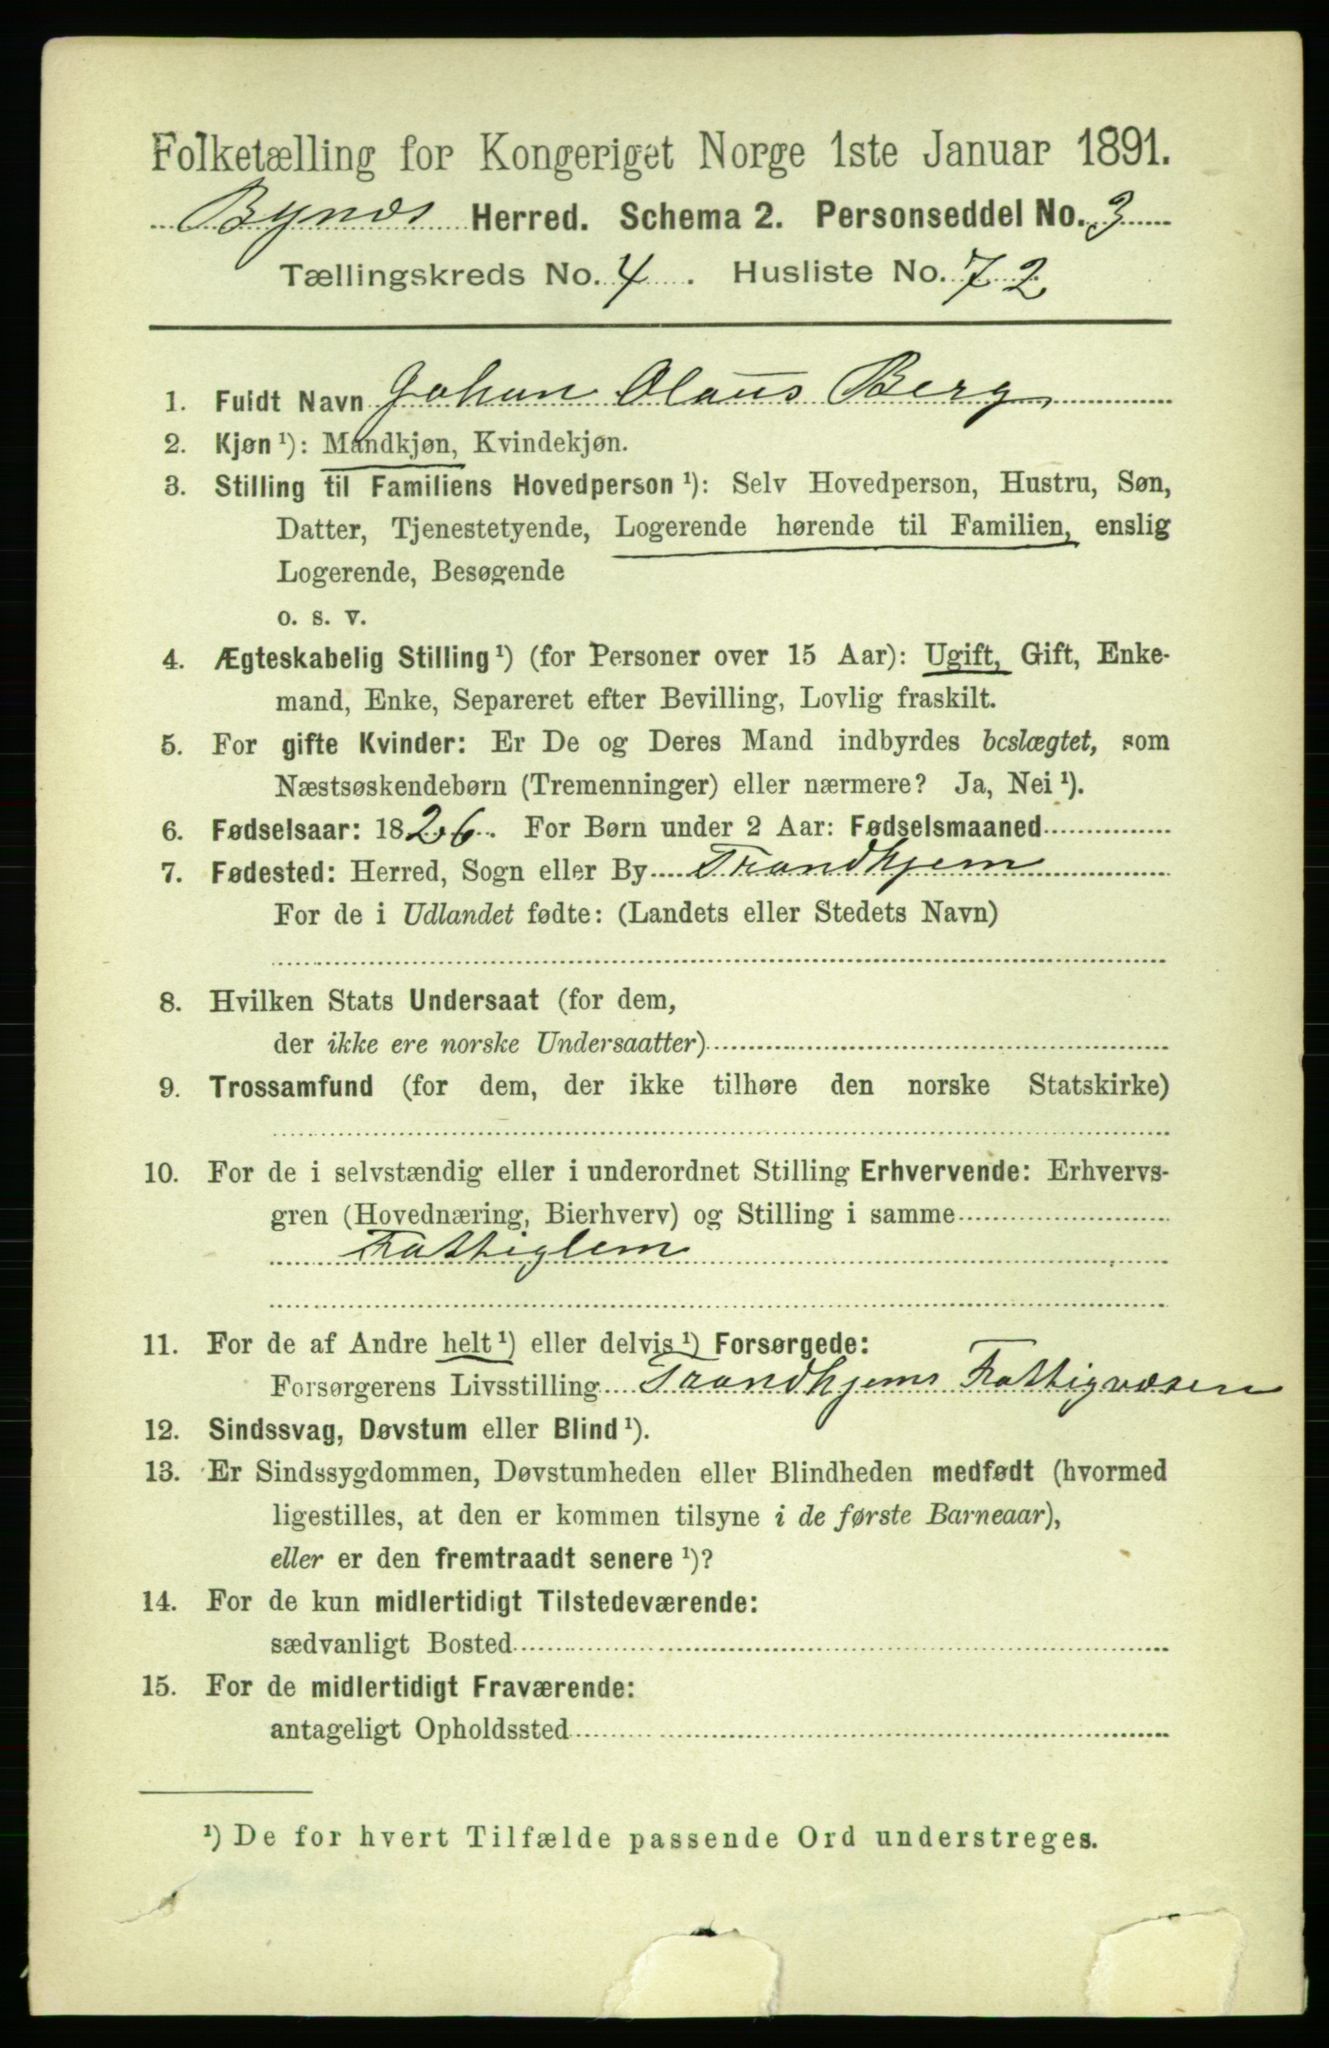 Folketælling for Kongeriget Norge 1ste Januar 1891.
Bynæs Herred. Schema 2. Personseddel No. 3
Tællingskreds No. 4. Husliste No. 72
1. Fuldt Navn Johan Olaus Berg
2. Kjøn ¹): Mandkjøn, Kvindekjøn.
3. Stilling til Familiens Hovedperson ¹): Selv Hovedperson, Hustru, Søn,
Datter, Tjenestetyende, Logerende hørende til Familien, enslig
Logerende, Besøgende
o. s. v.
4. Ægteskabelig Stilling ¹) (for Personer over 15 Aar): Ugift, Gift, Enke-
mand, Enke, Separeret efter Bevilling, Lovlig fraskilt.
5. For gifte Kvinder: Er De og Deres Mand indbyrdes beslægtet, som
Næstsøskendebørn (Tremenninger) eller nærmere? Ja, Nei ¹).
6. Fødselsaar: 1826. For Børn under 2 Aar: Fødselsmaaned
7. Fødested: Herred, Sogn eller By Trondhjem
For de i Udlandet fødte: (Landets eller Stedets Navn)
8. Hvilken Stats Undersaat (for dem,
der ikke ere norske Undersaatter)
9. Trossamfund (for dem, der ikke tilhøre den norske Statskirke)
10. For de i selvstændig eller i underordnet Stilling Erhvervende: Erhvervs-
gren (Hovednæring, Bierhverv) og Stilling i samme
Fattiglem
11. For de af Andre helt ¹) eller delvis ¹) Forsørgede:
Forsørgerens Livsstilling Trondhjems Fattigvæsen
12. Sindssvag, Døvstum eller Blind ¹).
13. Er Sindssygdommen, Døvstumheden eller Blindheden medfødt (hvormed
ligestilles, at den er kommen tilsyne i de første Barneaar),
eller er den fremtraadt senere ¹)?
14. For de kun midlertidigt Tilstedeværende:
sædvanligt Bosted
15. For de midlertidigt Fraværende:
antageligt Opholdssted
¹) De for hvert Tilfælde passende Ord understreges.